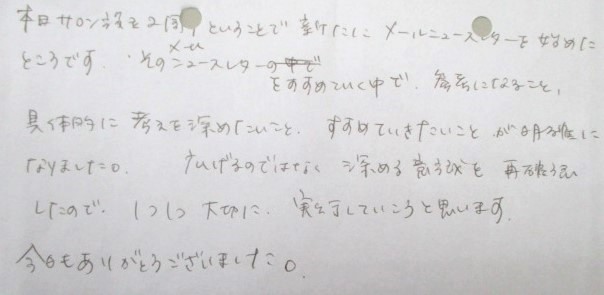 本日サロン設定2回目ということで 新たに メールニュースレターを始めた
ところです。そのメールニュースレターの中で
をすすめていく中で、参考になること、
具体的に考えを深めたいこと、すすめていきたいことが明確に
なりました。広げるのではなく 深める意識を再確認
したので、1つ1つ大切に、実行していこうと思います。
今日もありがとうございました。